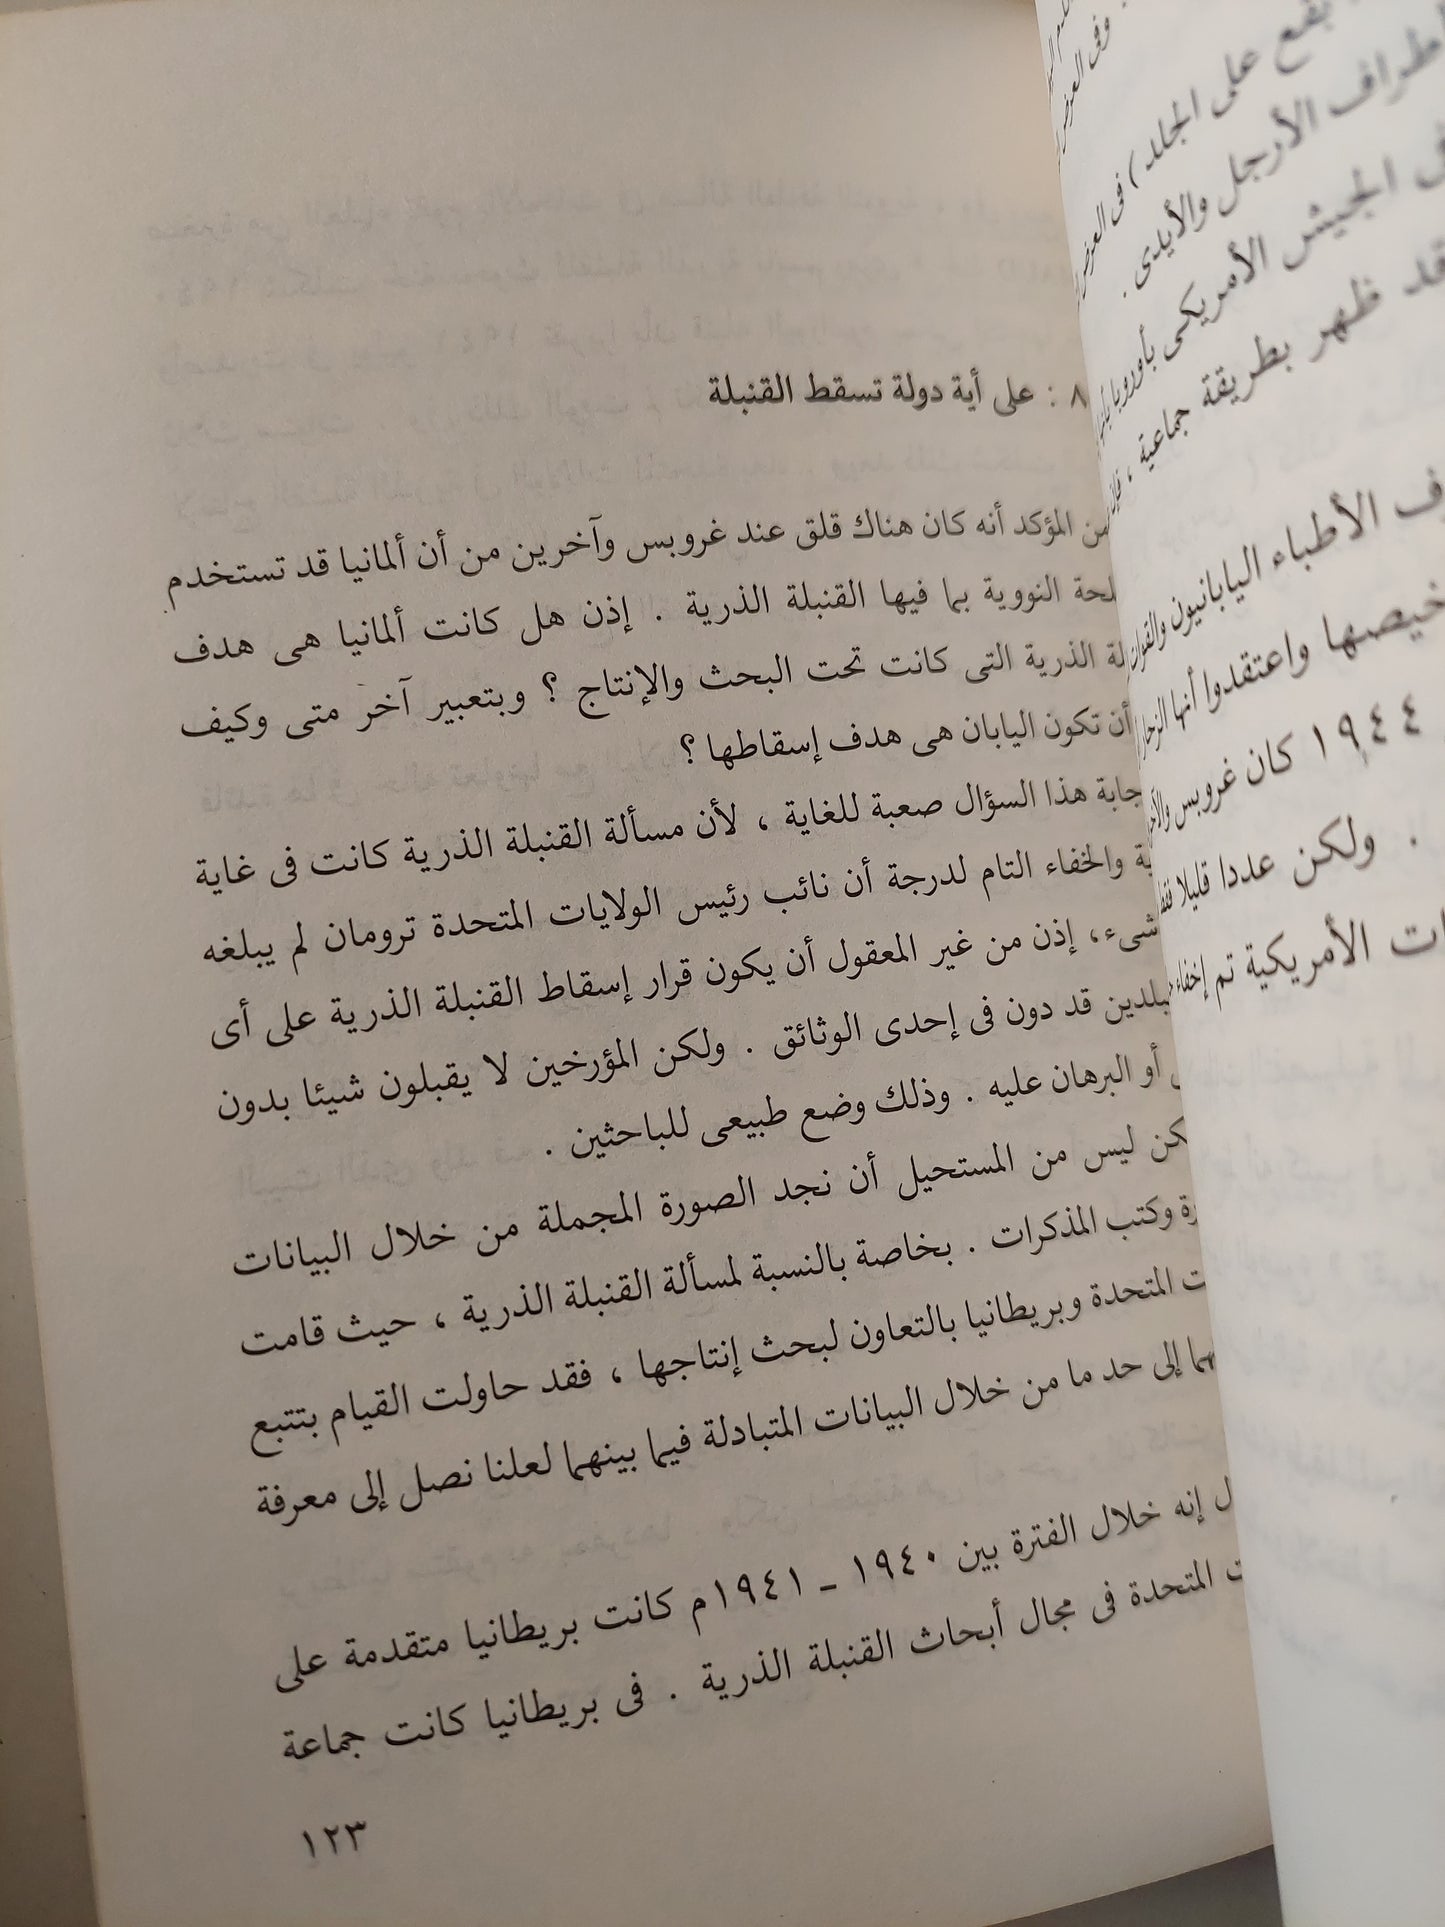 ٨ : على أية دولة تسقط القنبلة
المؤكد أنه كان هناك قلق عند غروبس وآخرين من أن ألمانيا قد تستخدم
النووية بما فيها القنبلة الذرية . إذن هل كانت ألمانيا هى هدف
الذرية التى كانت تحت البحث والإنتاج ؟ وبتعبير آخر متى وكيف
أن تكون اليابان هى هدف إسقاطها ؟
هذا السؤال صعبة للغاية ، لأن مسألة القنبلة الذرية كانت فى غاية
والخفاء التام لدرجة أن نائب رئيس الولايات المتحدة ترومان لم يبلغه
شىء، إذن من غير المعقول أن يكون قرار إسقاط القنبلة الذرية على أى
قد دون فى إحدى الوثائق . ولكن المؤرخين لا يقبلون شيئا بدون
أو البرهان عليه . وذلك وضع طبيعى للباحثين .
ليس من المستحيل أن نجد الصورة المجملة من خلال البيانات
وكتب المذكرات . بخاصة بالنسبة لمسألة القنبلة الذرية ، حيث قامت
المتحدة وبريطانيا بالتعاون لبحث إنتاجها ، فقد حاولت القيام بتتبع
إلى حد ما من خلال البيانات المتبادلة فيما بينهما لعلنا نصل إلى معرفة
إنه خلال الفترة بين ١٩٤٠ ـ ١٩٤١م كانت بريطانيا متقدمة على
المتحدة فى مجال أبحاث القنبلة الذرية . فى بريطانيا كانت جماعة
١٢٣
على الجلد ) فى
الأرجل والأيدى .
الجيش الأمريكى بأوروبا
ظهر بطريقة جماعية ،
الأطباء اليابانيون
واعتقدوا أنها
١٩٤٤ كان غروبس
. ولكن عددا قليلا فقط
الأمريكية تم إخفاء